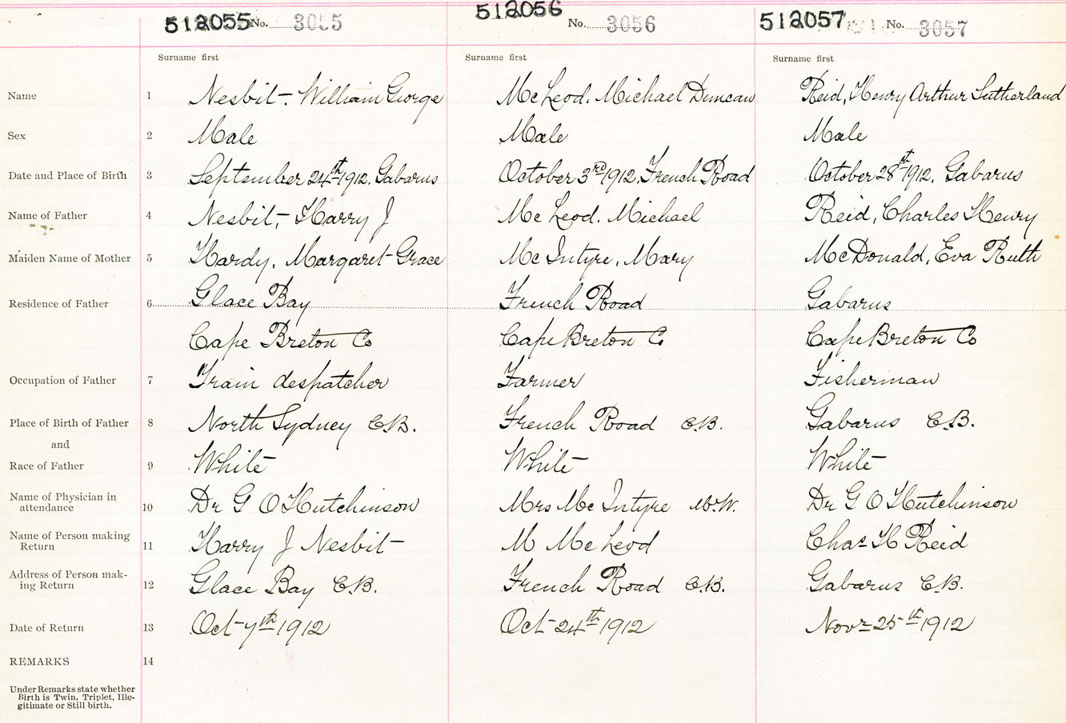 512055 No. 3055 512056 No. 3056 512057 No. 3057
Surname first Surname first Surname first
Name 1 Nesbit, William George McLeod, Michael Duncan Reid, Henry Arthur Sutherland
Sex 2 Male Male Male
Date and Place of Birth 3 September 24th 1912, Gabarus October 3rd 1912, French Road October 28th 1912, Gabarus
Name of Father 4 Nesbit, Harry J Mc Leod. Michael Reid, Charles Henry
Maiden Name of Mother 5 Hardy, Margaret Grace Mc Intyre, Mary McDonald, Eva Ruth
Residence of Father 6 Glace Bay French Road Gabarus
Cape Breton Co Cape Breton Co Cape Breton Co
Occupation of Father 7 Train despatcher Farmer Fisherman
Place of Birth of Father 8 North Sydney C.B. French Road C.B. Gabarus C.B.
and
Race of Father 9 White White White
Name of Physician in attendance 10 Dr G O Hutchinson Mrs Mc Intyre M.W. Dr G O Hutchinson
Name of Person making Return 11 Harry J Nesbit M Mc Leod Chas H Reid
Address of Person mak-ing Return 12 Glace Bay C.B. French Road C.B. Gabarus C.B.
Date of Return 13 Oct 7th 1912 Oct 24th 1912 Novr 25th 1912
REMARKS 14
Under Remarks state whether
Birth is Twin, Triplet, Ille-
gitimate or Still birth.